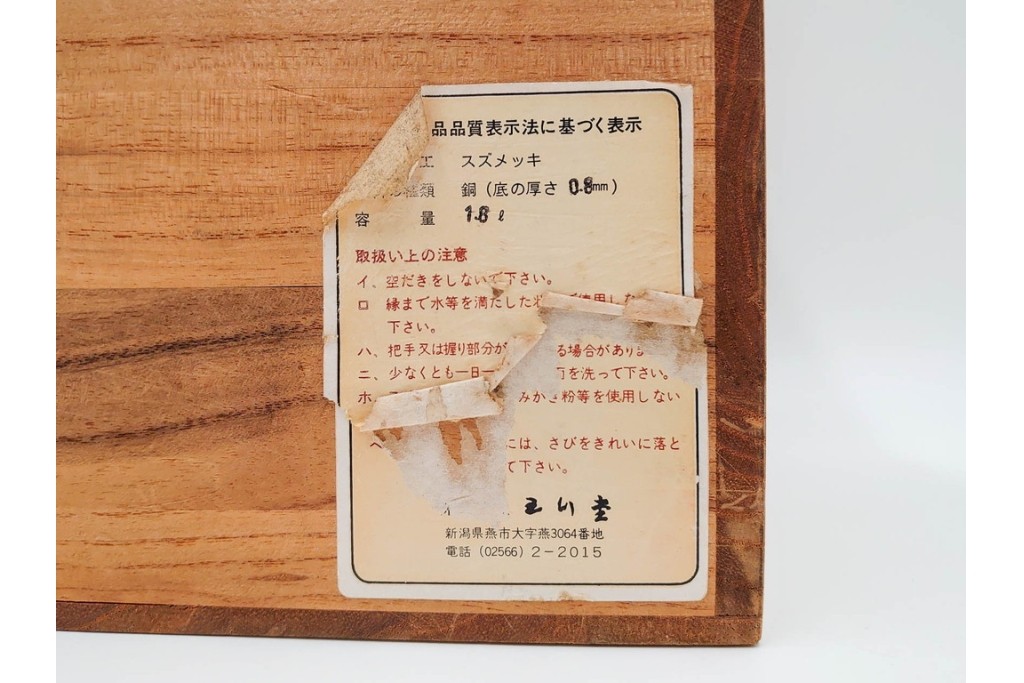 品品質表示法に基づく表示
工 スズメッキ
種類 銅（底の厚さ 0.8mm）
容 量 1.8 ℓ
取扱い上の注意
イ、空だきをしないで下さい。
ロ 縁まで水等を満たした状 で使用しな
下さい。
ハ、把手又は握り部分が る場合があります
ニ、少なくとも一日一 を洗って下さい。
ホ、 みがき粉等を使用しない
ヘ には、さびをきれいに落と
て下さい。
玉川堂
新潟県燕市大字燕3064番地
電話（02566）2－2015